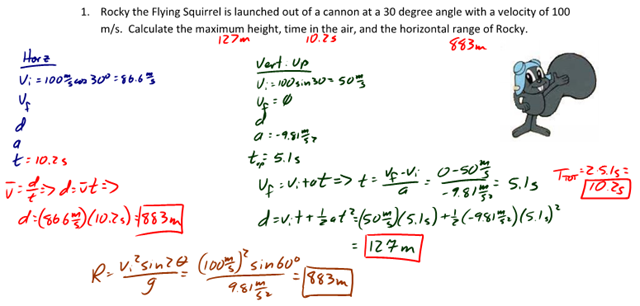 1. Rocky the Flying Squirrel is launched out of a cannon at a 30 degree angle with a velocity of 100
m/s. Calculate the maximum height, time in the air, and the horizontal range of Rocky.
127m 10.2s 883m
Horz
Vi = 100 m/s cos 30° = 86.6 m/s
Vf
d
a
t = 10.2s
v̄ = d/t => d = v̄t =>
d = (86.6 m/s)(10.2s) = 883m
Vert. Up
Vi = 100 sin 30 = 50 m/s
Vf = Ø
d
a = -9.81 m/s²
tup = 5.1s
Vf = Vi + at => t = (Vf - Vi)/a = (0 - 50 m/s)/(-9.81 m/s²) = 5.1s
TTOT = 2·5.1s =
10.2s
d = Vit + ½at² = (50 m/s)(5.1s) + ½(-9.81 m/s²)(5.1s)²
= 127m
R = Vi² sin 2θ / g = (100 m/s)² sin 60° / 9.81 m/s² = 883m